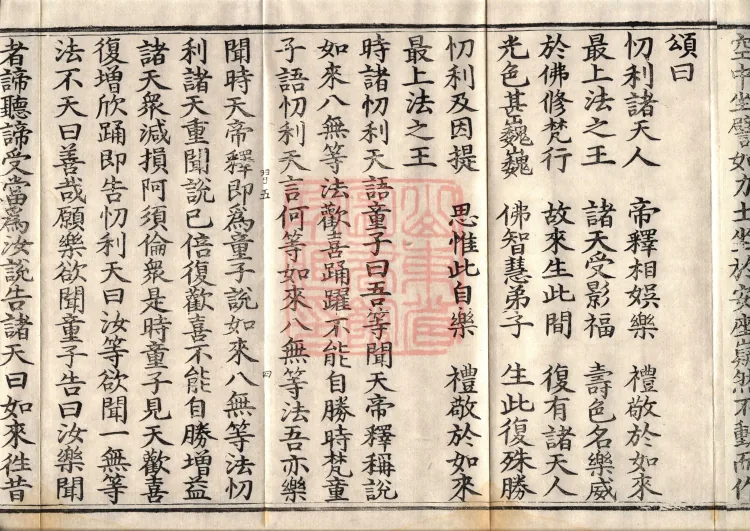 空中坐譬如力士坐於安座嶷然不動而作
頌曰
忉利諸天人 帝釋相娛樂 禮敬於如來
最上法之王 諸天受影福 壽色名樂威
於佛修梵行 故來生此間 復有諸天人
光色甚巍巍 佛智慧弟子 生此復殊勝
忉利及因提 思惟此自樂 禮敬於如來
最上法之王
時諸忉利天語童子曰吾等聞天帝釋稱說
如來八無等法歡喜踊躍不能自勝時梵童
子語忉利天言何等如來八無等法吾亦樂
聞時天帝釋即為童子說如來八無等法忉
利諸天重聞說已倍復歡喜不能自勝增益
諸天眾減損阿須倫眾是時童子見天歡喜
復增欣踊即告忉利天曰汝等欲聞一無等
法不天曰善哉願樂欲聞童子告曰汝樂聞
者諦聽諦受當為汝說告諸天曰如來徃昔
習五
四